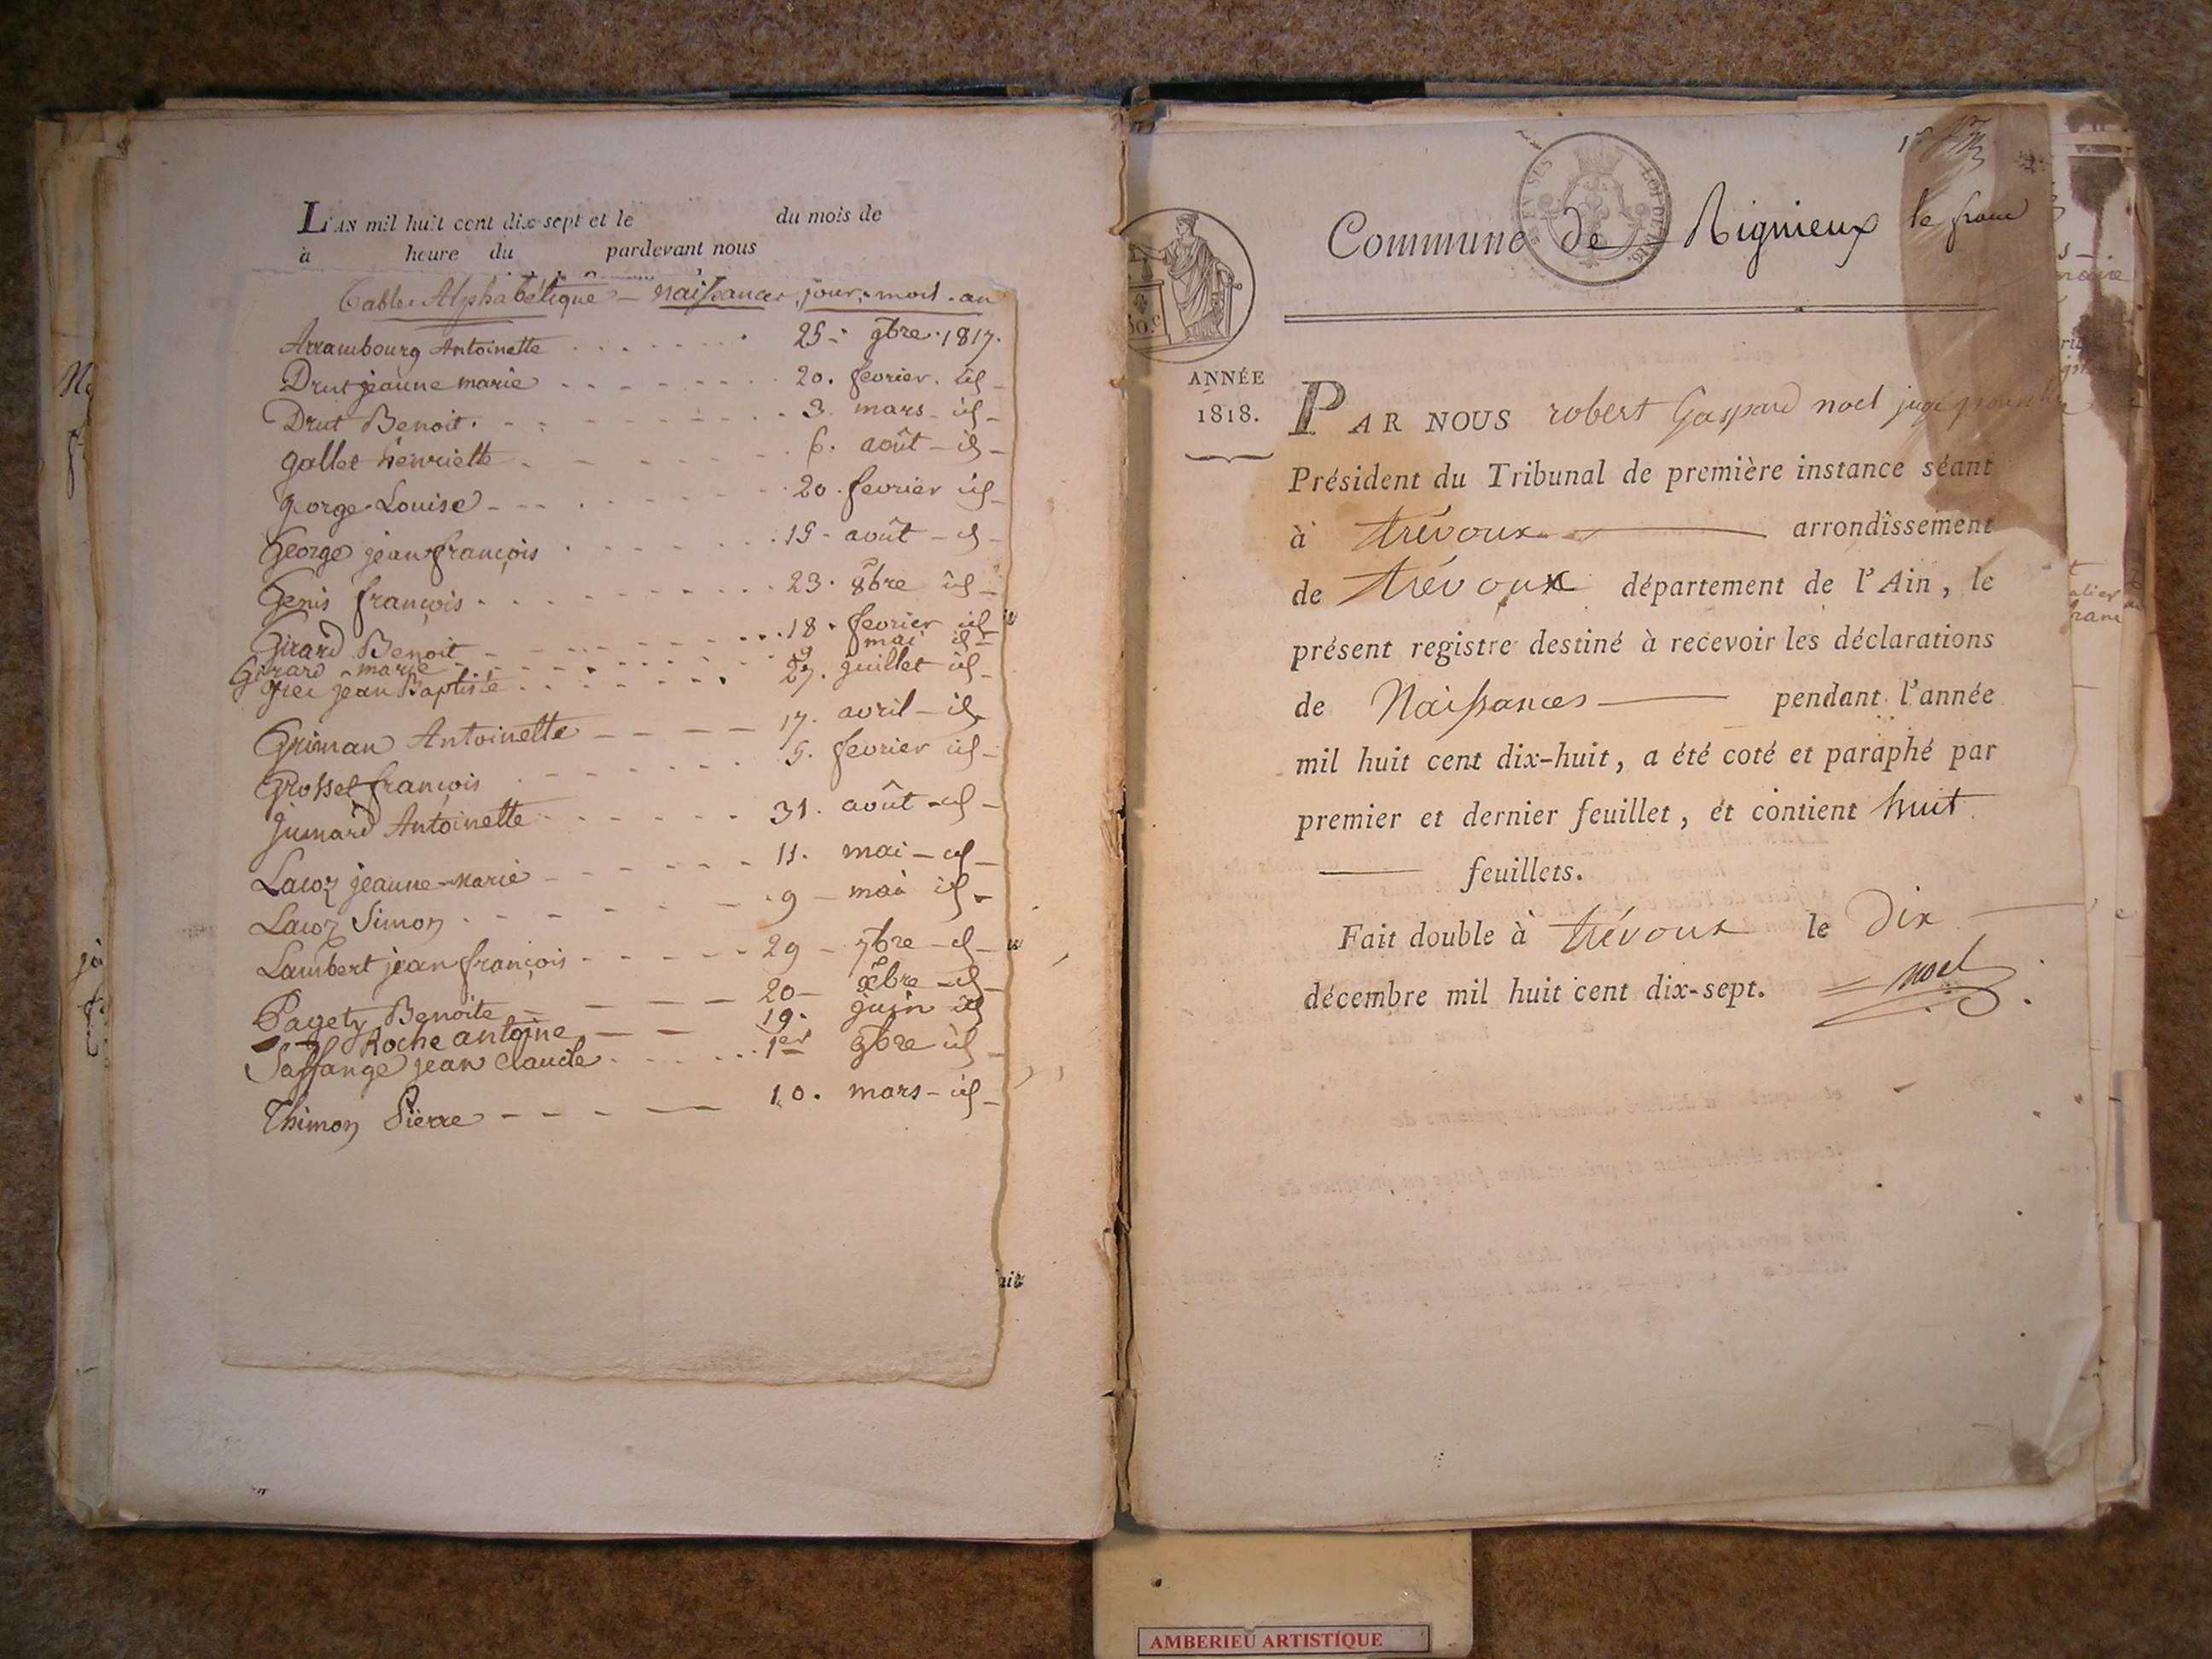 L'AN mil huit cent dix-sept et le du mois de
à heure du pardevant nous
Table Alphabétique — naissances, jour, mois. an
Arrambourg Antoinette 25. 9bre. 1817.
Drut jeanne marie 20. fevrier. id
Drut Benoit. 3. mars id
gallet henriette 6. août id
gorge Louise 20. fevrier id
George jean françois 15. août id
Genis françois 23. 8bre id
Girard Benoit 18. fevrier id
Girard marie 9 mai id
jean Baptiste 27. juillet id
Griman Antoinette 17. avril id
Grosset françois 5. fevrier id
Jumard Antoinette 31. août id
Lacoz jeanne-marie 11. mai id
Lacoz Simon 9 mai id
Lambert jean françois 29 7bre id
Pagety Benoite 20 Xbre id
Roche antoine 19. juin id
Saffange jean claude 1er 9bre id
Thimon Pierre 10. mars id
Commune de Rignieux le franc
ANNÉE
1818.
PAR NOUS robert Gaspard noel juge pour le
Président du Tribunal de première instance séant
à trévoux arrondissement
de trévoux département de l'Ain, le
présent registre destiné à recevoir les déclarations
de Naissances pendant l'année
mil huit cent dix-huit, a été coté et paraphé par
premier et dernier feuillet, et contient huit
feuillets.
Fait double à trévoux le Dix
décembre mil huit cent dix-sept. noel
AMBERIEU ARTISTIQUE